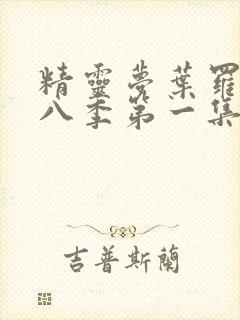 精靈夢葉羅
八季第一集
吉普斯蘭